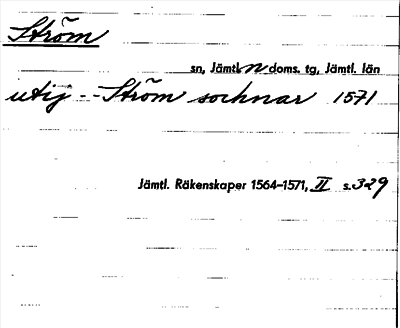 Ström
sn, Jämtl. n doms. tg, Jämtl. län
utij -- Ström sochnar 1571
Jämtl. Räkenskaper 1564-1571, II s. 329